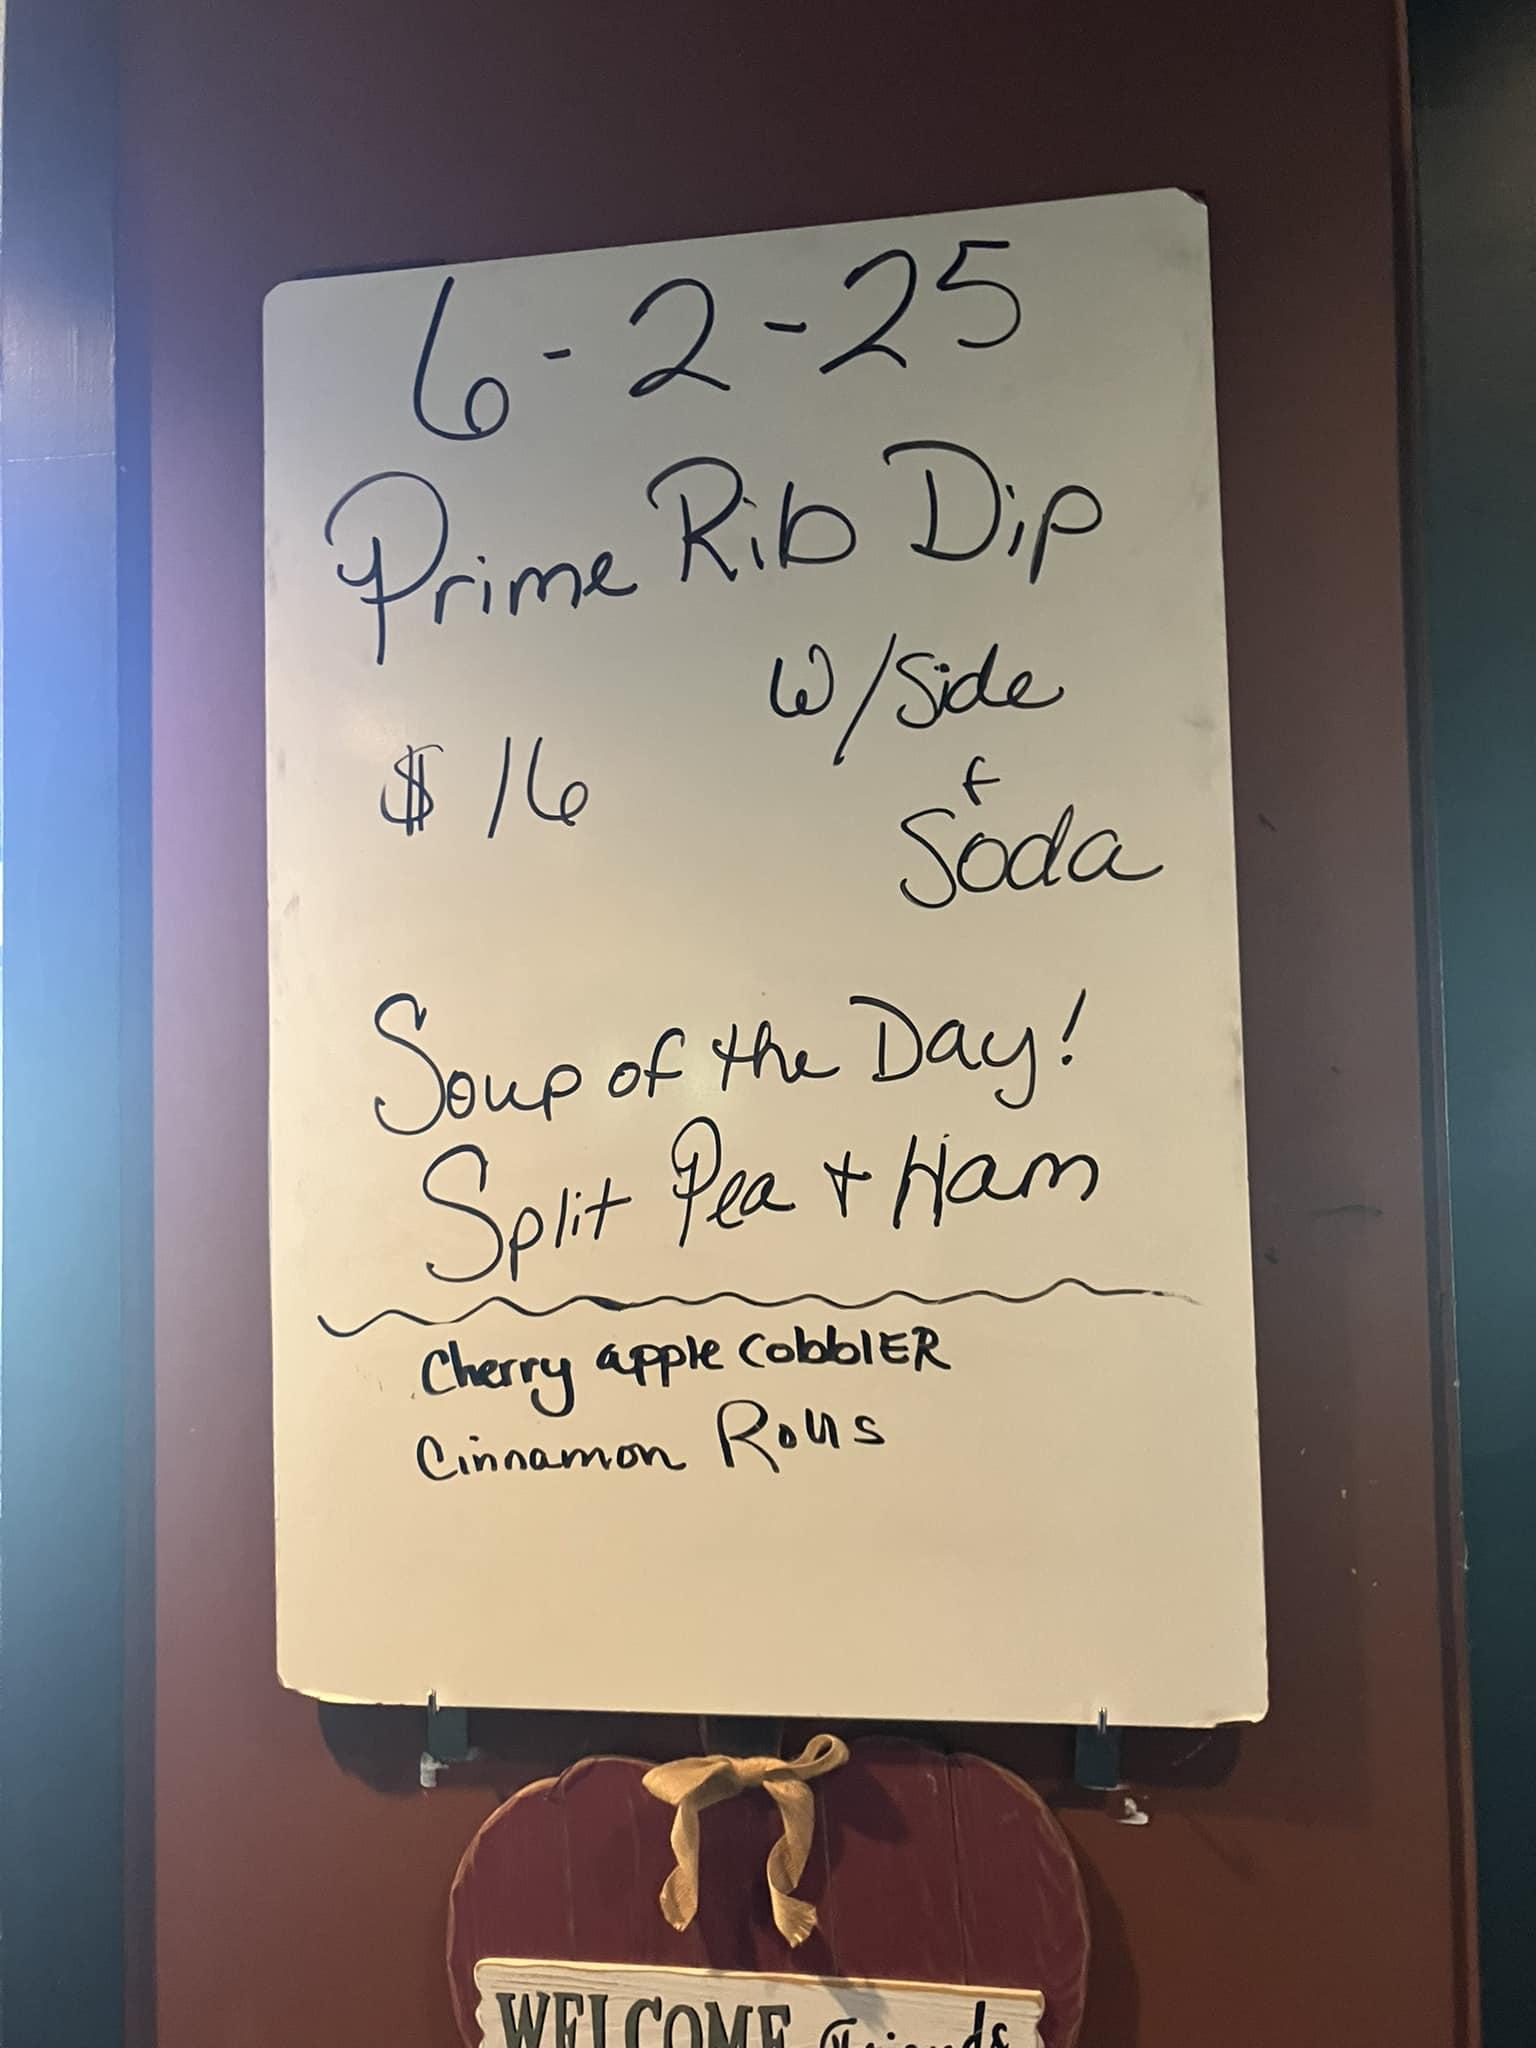 6-2-25
Prime Rib Dip
w/Side
+
$16
Soda
Soup of the Day!
Split Pea + Ham
Cherry apple CobblER
Cinnamon Rolls
WELCOME Friends